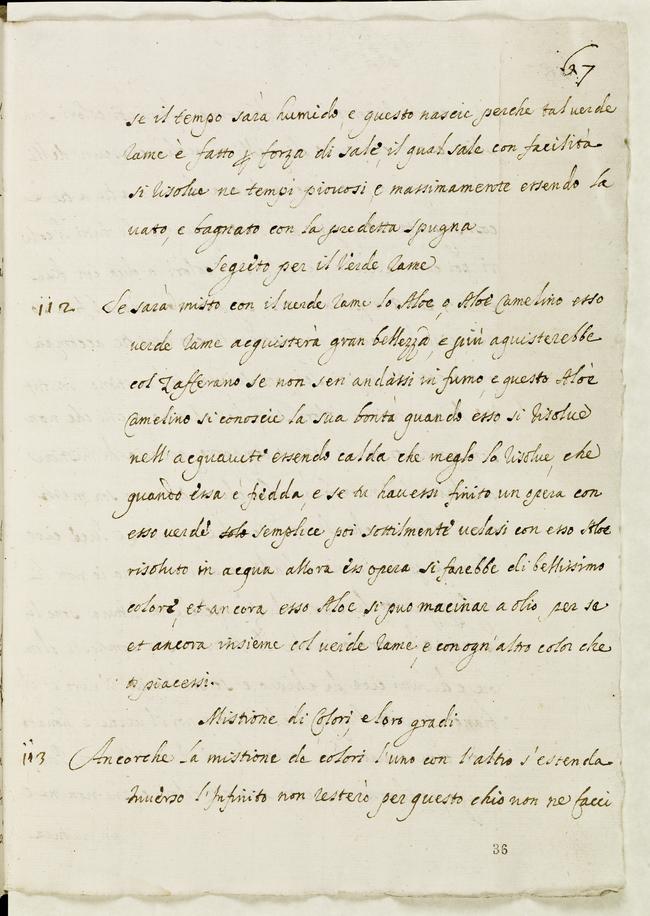 67
se il tempo sarà humido, e questo nascie perche tal verde
rame è fatto p forza di sale, il qual sale con facilità
si risolve ne tempi piovosi, e massimamente essendo la
vato, e bagnato con la predetta spugna
Segreto per il Verde rame
112 Se sarà misto con il verde rame lo Aloe, o Aloe Camelino esso
verde rame acquisterà gran bellezza, e più aquisterebbe
col Zafferano se non sen andassi in fumo, e questo Aloè
Camelino si conoscie la sua bontà quando esso si risolve
nell'acquavite essendo calda che meglo lo risolve, che
quando essa è fredda, e se tu havessi finito un opera con
esso verde solo semplice poi sottilmente velasi con esso Aloe
risoluto in acqua allora ess opera si farebbe di bellissimo
colore, et ancora esso Aloe si può macinar a olio per se
et ancora insieme col verde rame, e con ogn'altro color che
ti piacessi.
Mistione di Colori, e loro gradi
113 Ancorche la mistione de colori l'uno con l'altro s'estenda
inverso l'Infinito non resterò per questo chio non ne facci
36